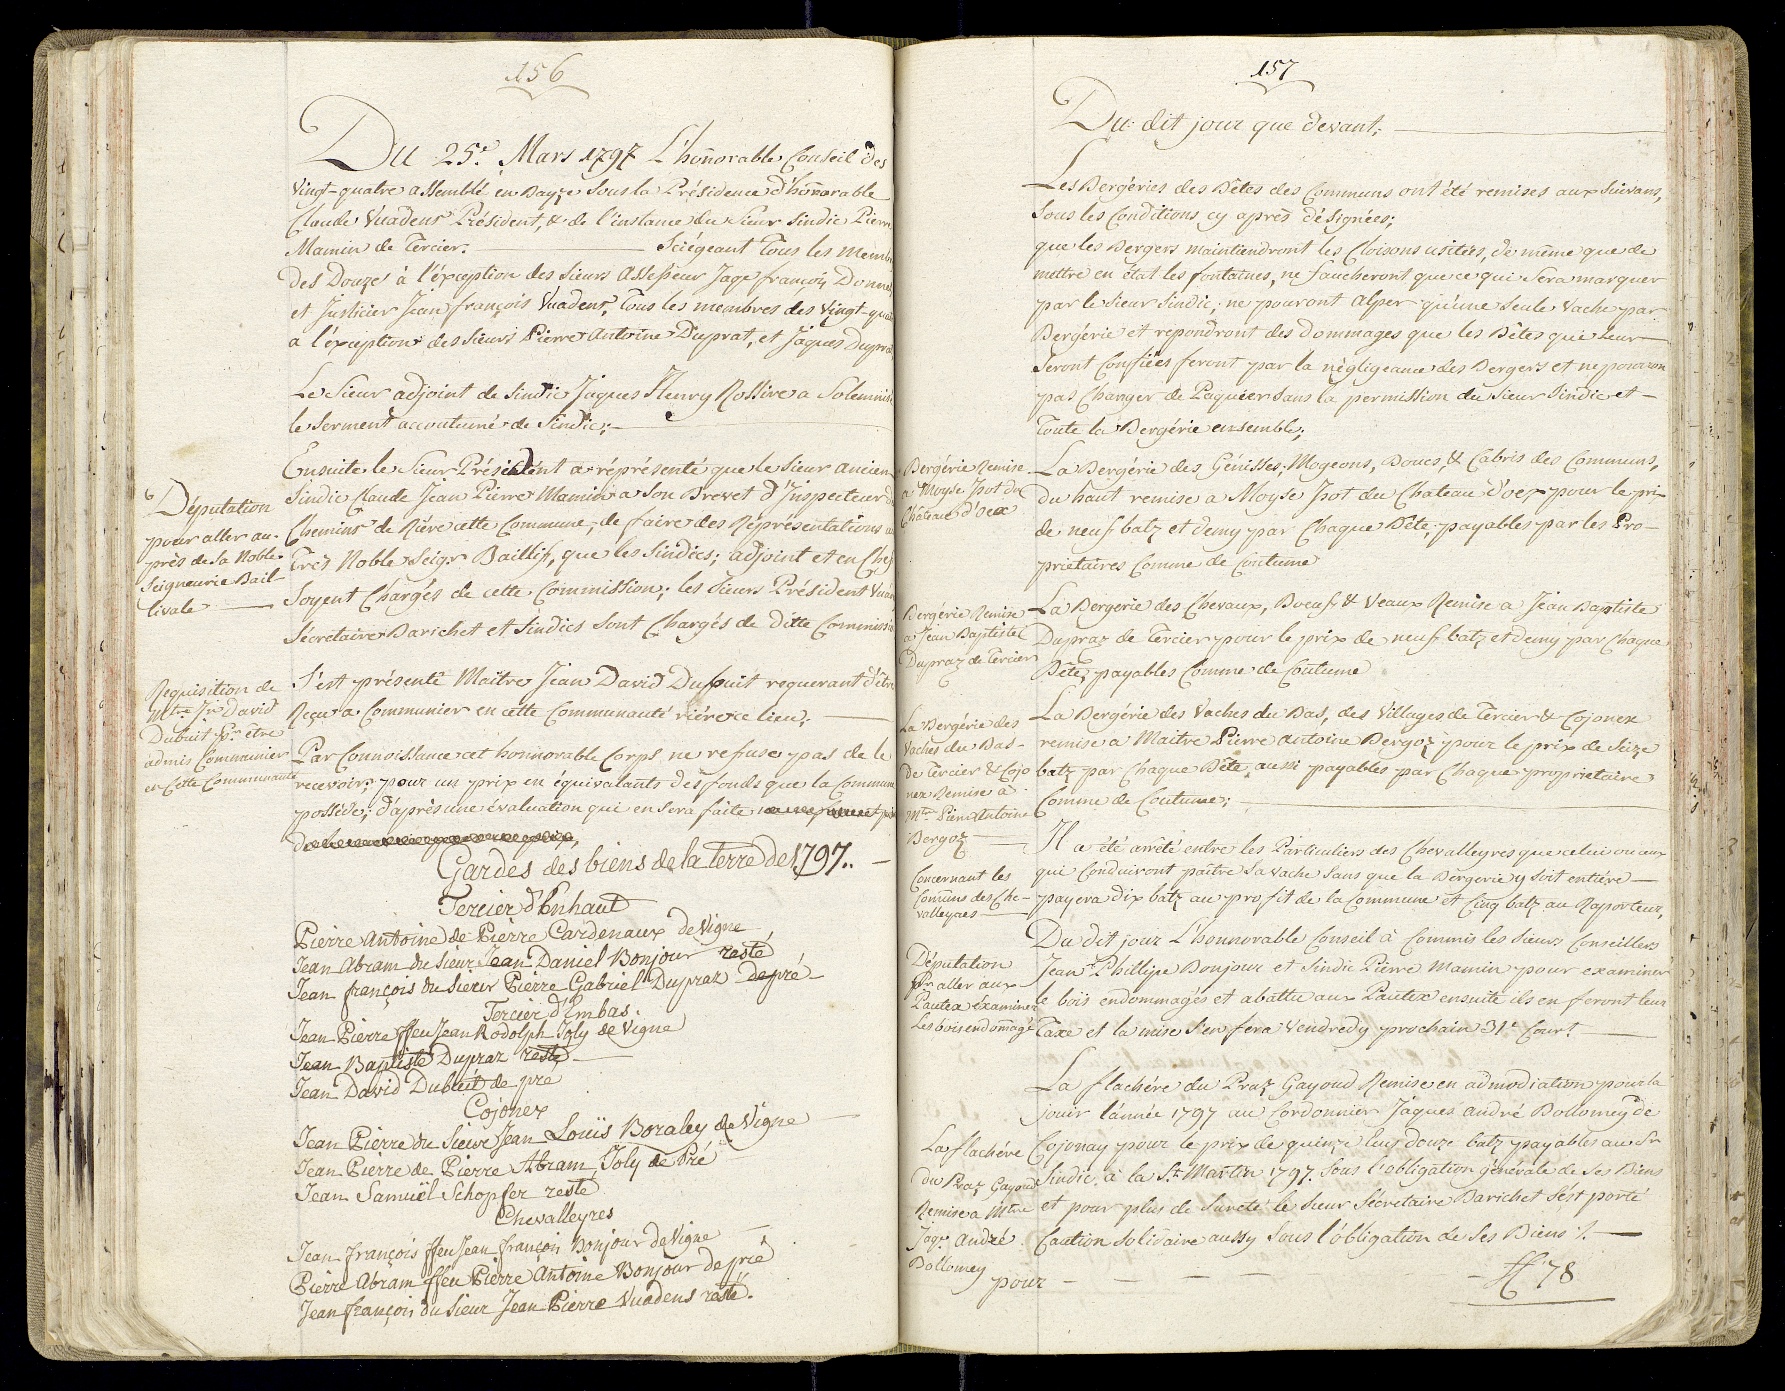 156
Du 25.e Mars 1797 L'honnorable Conseil des
Vingt-quatre assemblé en Bayze sous la Présidence d'honnorable
Claude Vuadens Président, & de l'instance du Sieur Sindic Pierre
Mamin de Tercier. Sciégeant Tous les Memb
Des Douze à l'éxception des Sieurs Assesseur Jaqe françois Donne
et Justicier Jean françois Vuadens, Tous les membres des Vingt-qua
a l'éxception des Sieurs Pierre Antoine Duprat, et Jaques Dupra
Le Sieur adjoint de Sindic Jaques Henry Rossire a Solemnis
le Serment accoutumé de Sindic;
Députation
pour aller au-
près de Sa Noble
Seigneurie Bail-
livale
Ensuite le Sieur Président a réprésenté que le Sieur ancien
Sindic Claude Jean Pierre Mamin a Son Brevet d'Inspecteur d
Chemins de Rière cette Commune, de faire des Réprésentations au
Très Noble Seigr Baillif, que les Sindics; adjoint et en Chef
Soyent Chargés de cette Commission; les Sieurs Président Vua
Sécrétaire Barichet et Sindics sont Chargés de ditte Commissio
Requisition de
Mtre Jn David
Dubuit pr être
admis Communier
en Cette Communauté
S'est présenté Maître Jean David Dubuit requerant d'être
Reçu a Communier en cette Communauté riére ce lieu;
Par Connoissance cet honnorable Corps ne refuse pas de le
recevoir; pour un prix en équivalants des fonds que la Commun
possède; d'aprés une évaluation qui en sera faite
Gardes des biens de la terre de 1797.
Tercier d'Enhaut
Pierre Antoine de Pierre Cardenaux de Vigne
Jean Abram du Sieur Jean Daniel Bonjour resté
Jean françois du Sieur Pierre Gabriel Dupraz de pré
Tercier d'Embas.
Jean Pierre ffeu Jean Rodolph Joly de Vigne
Jean Baptiste Dupraz resté
Jean David Dubuit de pré
Cojonex
Jean Pierre du Sieur Jean Louïs Boraley de Vigne
Jean Pierre de Pierre Abram Joly de Pré
Jean Samuël Schopfer resté
Chevalleyres
Jean françois ffeu Jean françois Bonjour de Vigne
Pierre Abram ffeu Pierre Antoine Bonjour de pré
Jean françois du Sieur Jean Pierre Vuadens resté.
157
Du dit jour que devant;
Les Bergéries des Bêtes des Communs ont été remises aux Suivans,
Sous les Conditions cy après désignées;
que les Bergers maintiendront les Cloisons usitées, de même que de
mettre en état les fontaines, ne faucheront que ce qui Sera marquer
par le Sieur Sindic; ne pouront Alper qu'une seule Vache par
Bergérie et repondront des dommages que les Bêtes qui leur
Seront Confiées feront par la négligeance des Bergers et ne pouron
pas Changer de Paquier sans la permission du Sieur Sindic et
Toute la Bergérie ensemble;
Bergérie Remise
a Moyse Isot du
Château d'Oex
La Bergérie des Génisses, Mogeons, Boucs, & Cabris des Communs,
du haut remise a Moyse Isot du Chateau d'oex pour le pri
de neuf batz et demy par Chaque Bête; payables par les Pro-
priétaires Comme de Coutume
Bergérie Remise
a Jean Baptiste
Dupraz de Tercier
La Bergerie des Chevaux, Boeufs & Veaux Remise a Jean Baptiste
Dupraz de Tercier pour le prix de neuf batz et demy par Chaque
Bête, payables Comme de Coutume
La Bergérie des
Vaches du Bas-
De Tercier & Cojo
nex Remise à
Mtre Pierre Antoine
Bergoz
La Bergérie des Vaches du Bas, des Villages de Tercier & Cojonex
remise a Maitre Pierre Antoine Bergoz pour le prix de Seize
batz par Chaque Bête, aussi payables par Chaque proprietaire
Comme de Coutume;
Concernant les
Comuns des Che-
valleyres
Il a été arrêté entre les Particuliers des Chevalleyres que celui ou aux
qui Conduiront paître Sa vache Sans que la Bergerie y soit entière
payera dix batz au profit de la Commune et Cinq batz au Raporteur,
Députation
pr aller aux
Pautex éxaminer
Les bois endomagé
Du dit jour L'honnorable Conseil à Commis les Sieurs Conseillers
Jean Phillipe Bonjour et Sindic Pierre Mamin pour examiner
le bois endommagés et abattu aux Pautex ensuite ils en feront leur
Taxe et la mise S'en fera Vendredy prochain 31e Court
La flachére
du Praz Gayoud
Remise a Mtre
Jaqe André
Dollomey
La flachére du Praz Gayoud Remise en admodiation pour la
jouir l'année 1797 au Cordonnier Jaques André Dollomey de
Cojonay pour le prix de quinze écus douze batz payables au Sr
Sindic à la St Martin 1797. Sous l'obligation générale de Ses Biens
et pour plus de Sureté le Sieur Sécretaire Barichet s'ést porté
Caution Solidaire aussy Sous l'obligation de Ses Biens %.
pour ff 78